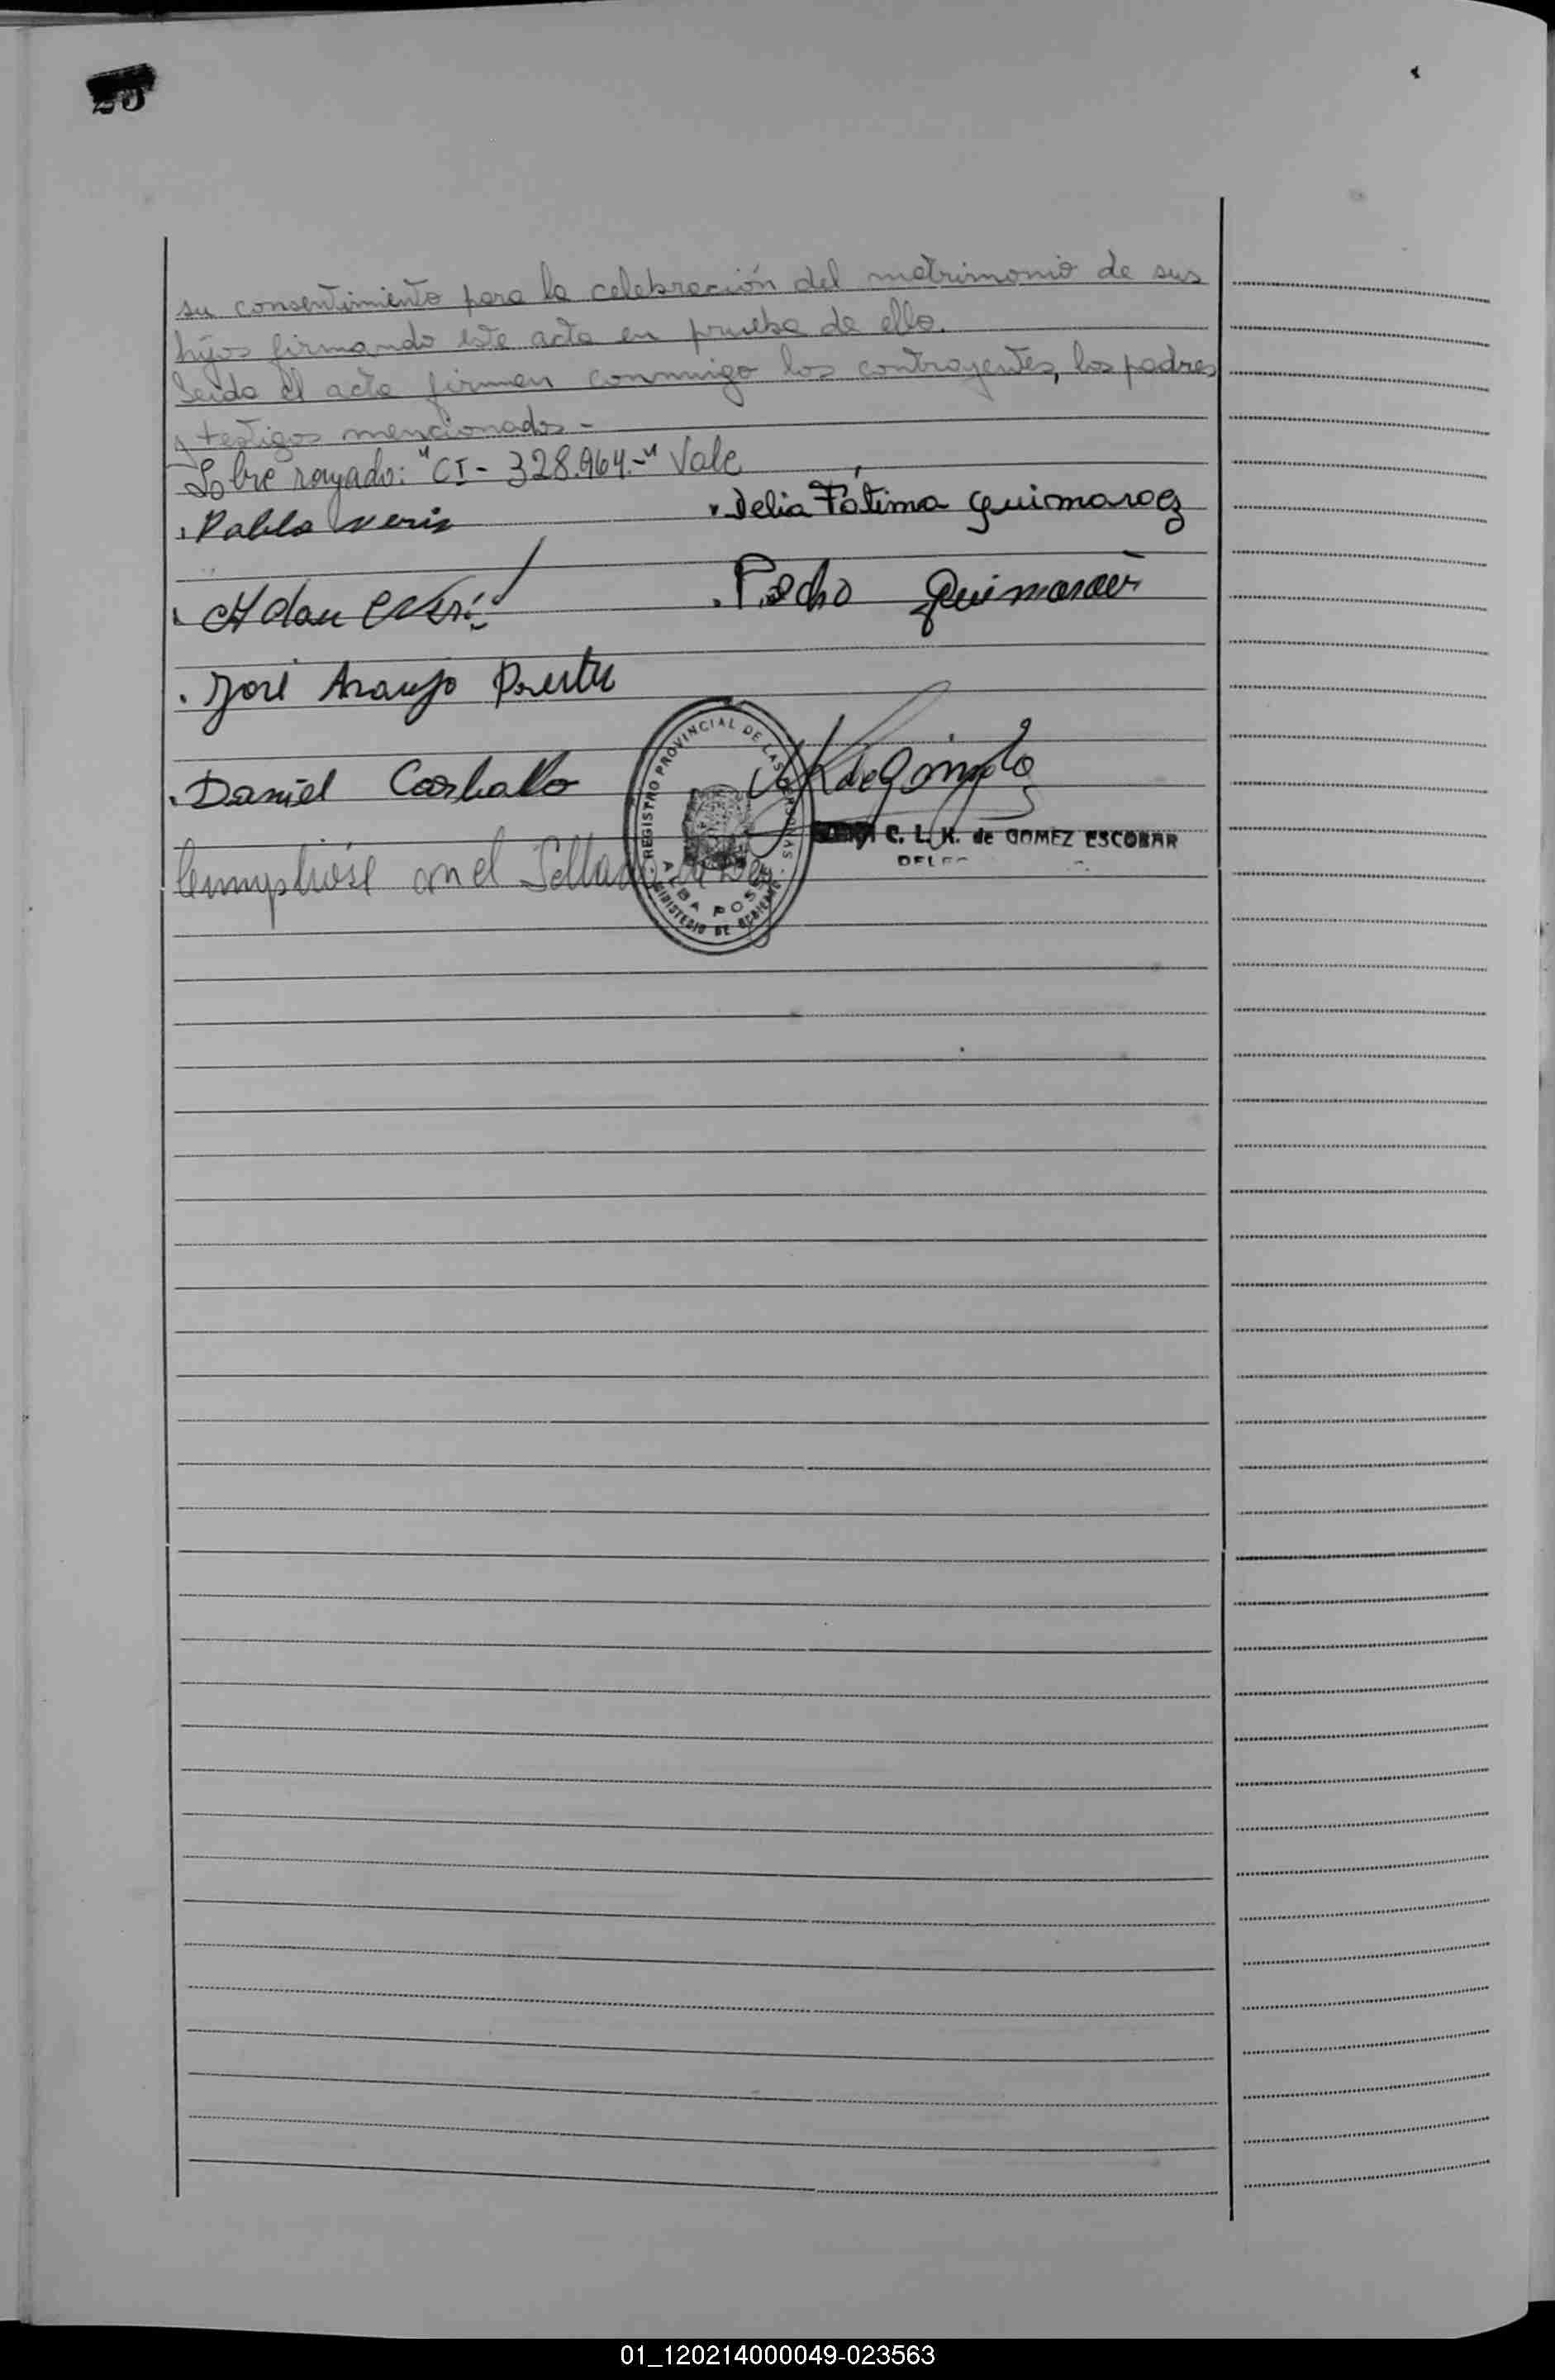 25
su consentimiento para la celebración del matrimonio de sus
hijos firmando este acta en prueba de ello.
Leída el acta firman conmigo los contrayentes, los padres
y testigos mencionados -
Sobre rayado: "CI - 328.964.-" Vale
Pablo Neris
Delia Fátima Guimaraez
Adan Neris
Pedro Guimaraes
José Araujo
Daniel Carballo
REGISTRO PROVINCIAL DE LAS PERSONAS
ALBA POSSE
MINISTERIO DE GOBIERNO
C. L. K. de GOMEZ ESCOBAR
Cumplióse con el Sellado de Ley
01_120214000049-023563